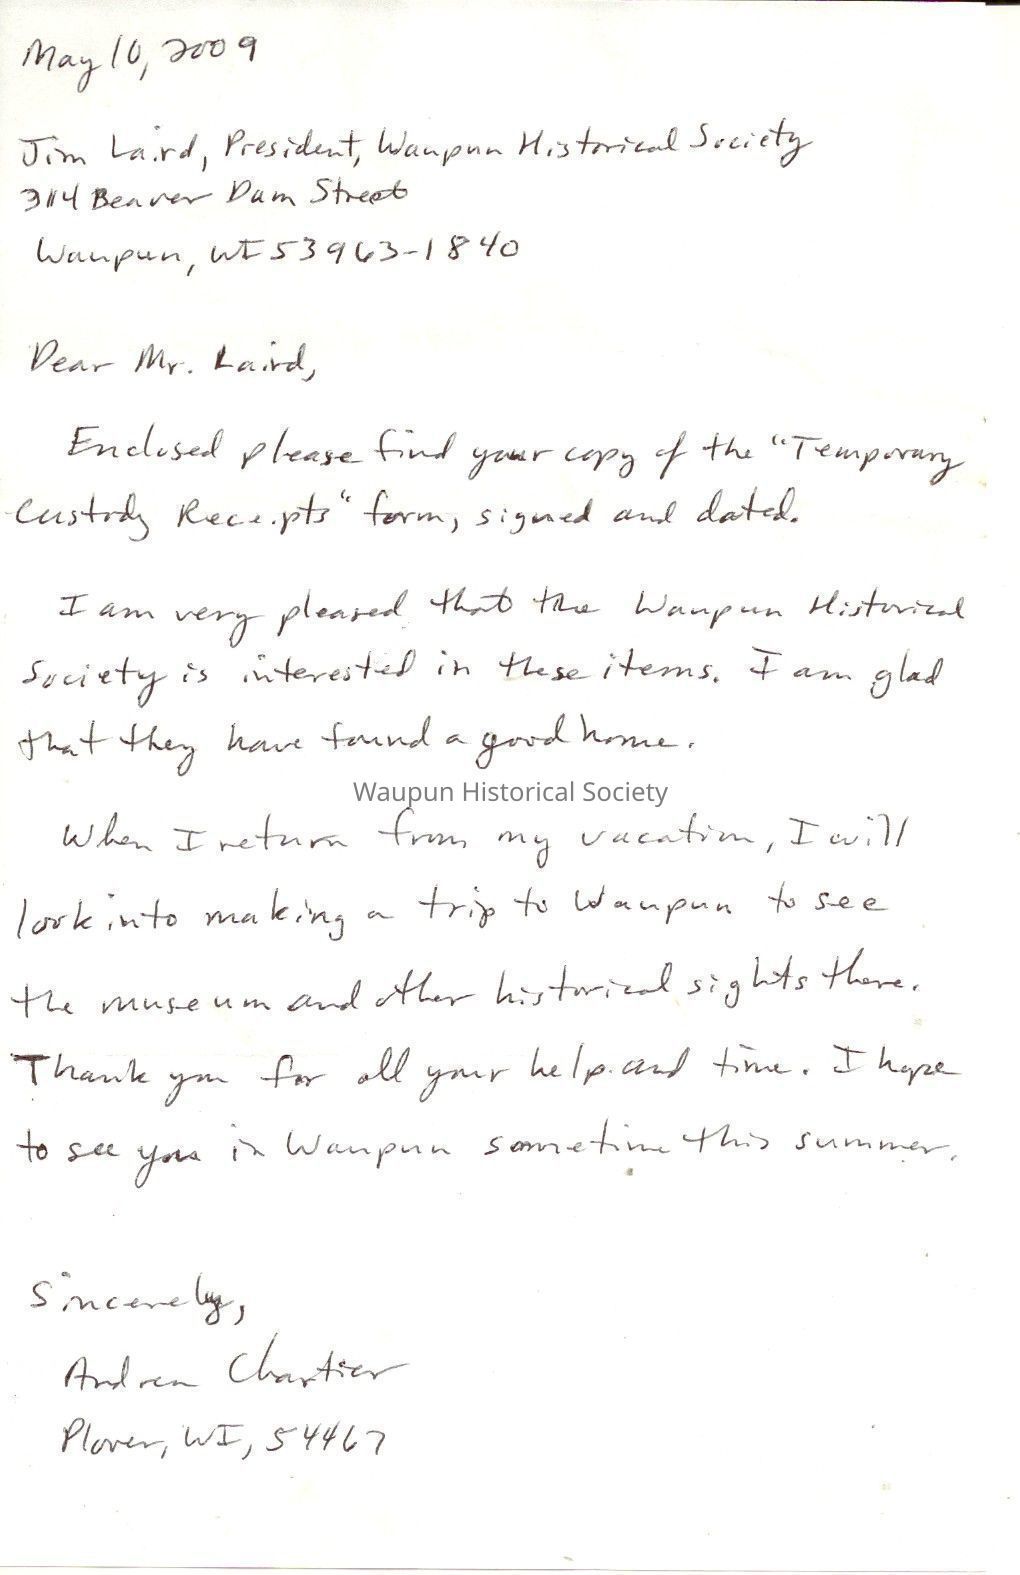 May 10, 2009
Jim Laird, President, Waupun Historical Society
Beaver Dam Street
Waupun, WI 53963-1840
Dear Mr. Laird,
Enclosed please find your copy of the "Temporary
Custody Receipts" form, signed and dated.
I am very pleased that the Waupun Historical
Society is interested in these items. I am glad
that they have found a good home.
Waupun Historical Society
When I return from my vacation, I will
look into making a trip to Waupun to see
the museum and other historical sights there.
Thank you for all your help and time. I hope
to see you in Waupun sometime this summer.
Sincerely,
Andrea Chartier
Plover, WI, 54467